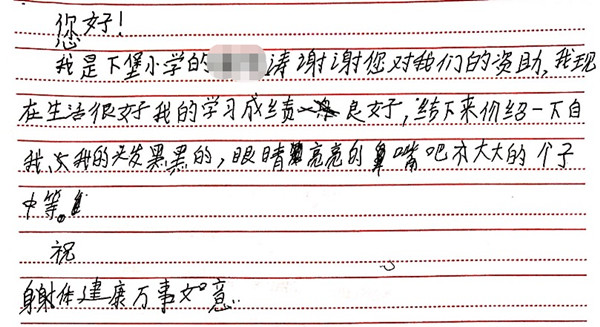 您好！
我是下堡小学的 涛谢谢您对我们的资助,我现
在生活很好我的学习成绩 良好,结下来介绍一下自
我,我的头发黑黑的,眼睛 亮亮的 嘴吧不大大的个子
中等。
祝
身体建康万事如意.